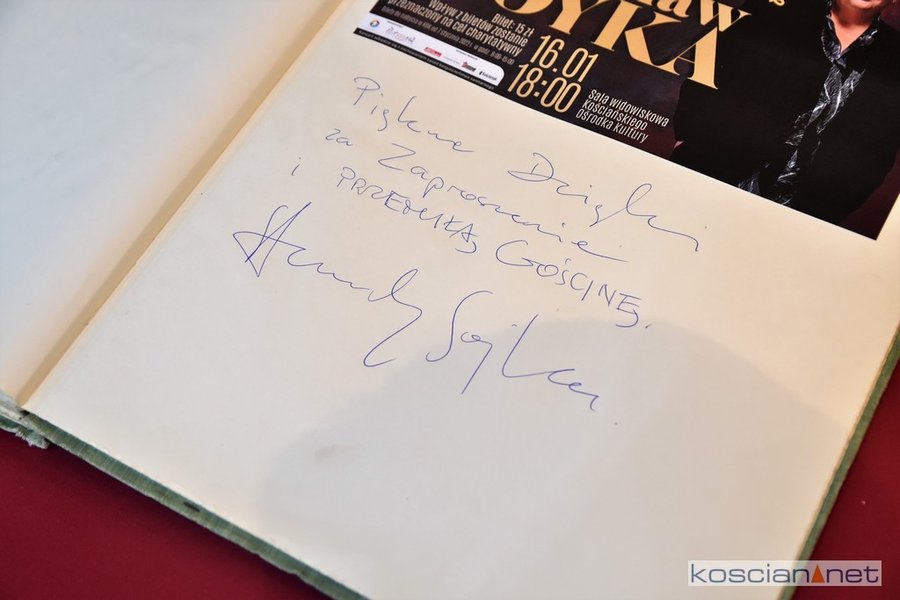 ław
OYKA
Bilet: 15 zł
Wpływ z biletów zostanie
przeznaczony na cel charytatywny
16.01
18:00
Sala widowiskowa
Kościańskiego
Ośrodka Kultury
Piękne Dzięki
za Zaproszenie
i PRZEMIŁĄ GOŚCINĘ.
koscian.net